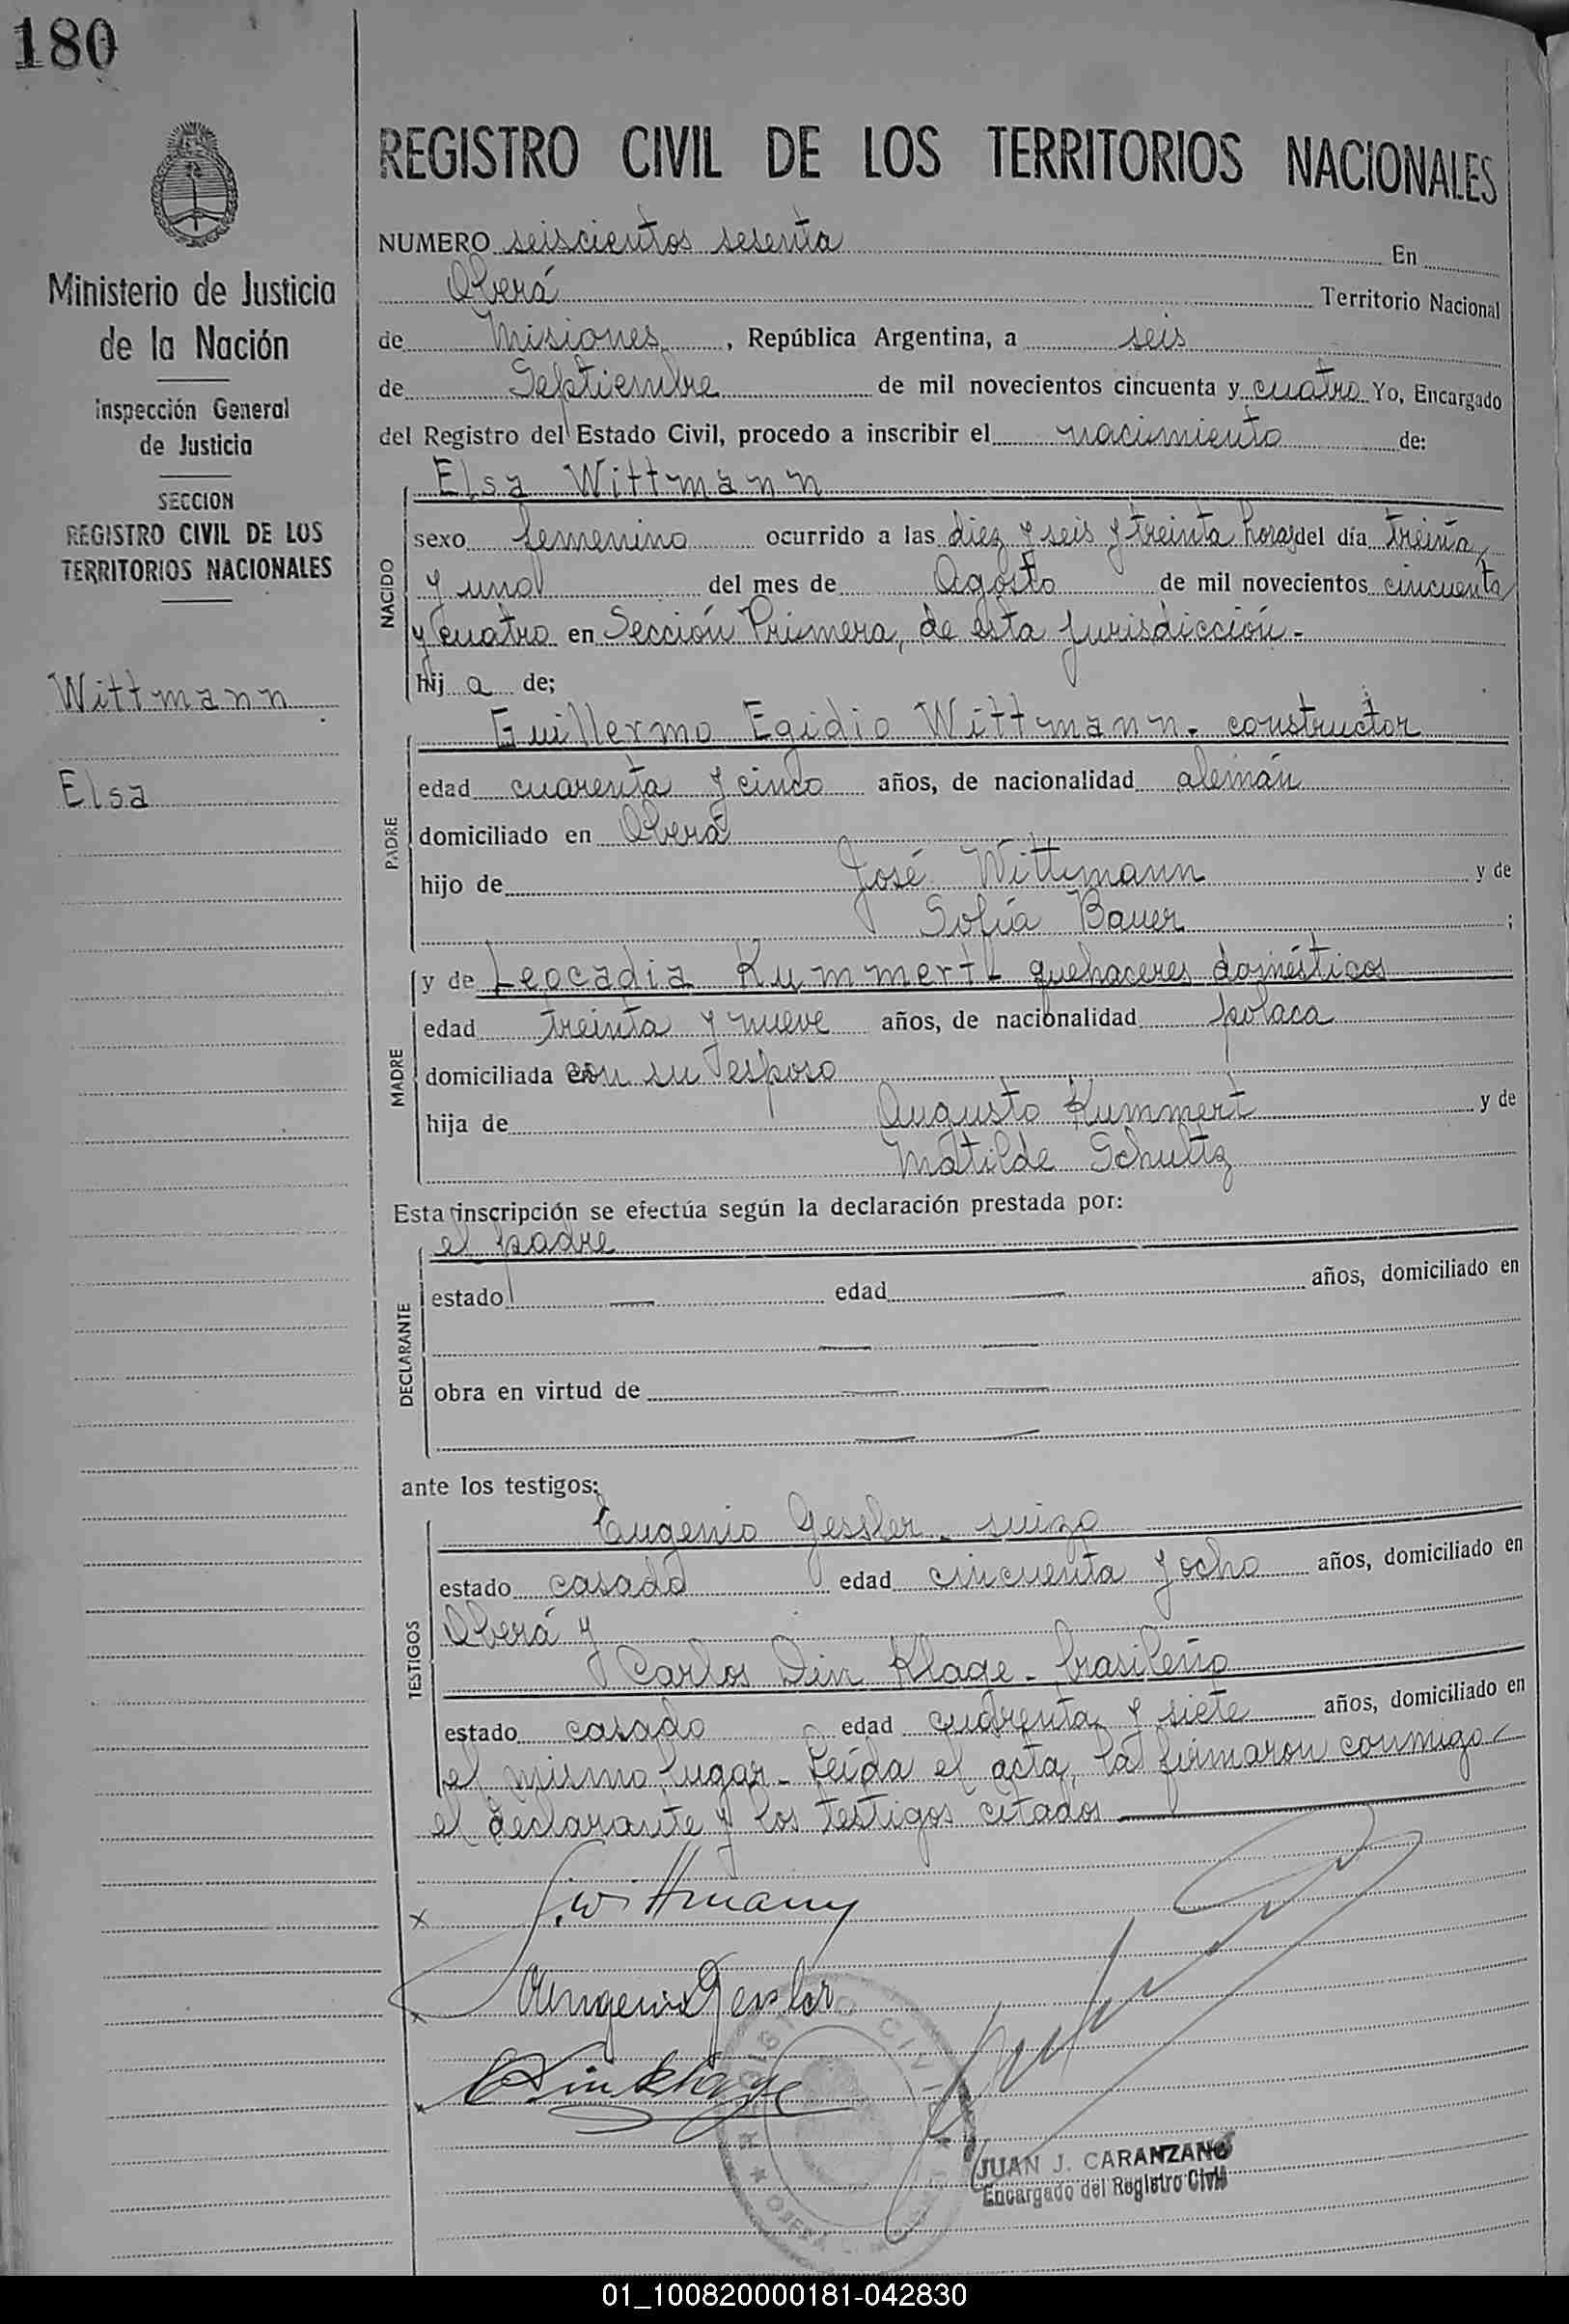 180
REGISTRO CIVIL DE LOS TERRITORIOS NACIONALES
Ministerio de Justicia
de la Nación
Inspección General
de Justicia
SECCION
REGISTRO CIVIL DE LOS
TERRITORIOS NACIONALES
Wittmann
Elsa
NUMERO seiscientos sesenta En
Oberá Territorio Nacional
de Misiones, República Argentina, a seis
de Septiembre de mil novecientos cincuenta y cuatro Yo, Encargado
del Registro del Estado Civil, procedo a inscribir el nacimiento de:
NACIDO
Elsa Wittmann
sexo femenino ocurrido a las diez y seis y treinta horas del día treinta
y uno del mes de Agosto de mil novecientos cincuenta
y cuatro en Sección Primera, de esta jurisdicción-
hij a de;
PADRE
Guillermo Egidio Wittmann- constructor
edad cuarenta y cinco años, de nacionalidad alemán
domiciliado en Oberá
hijo de José Wittmann y de
Sofía Bauer ;
MADRE
y de Leocadia Kummert- quehaceres domésticos
edad treinta y nueve años, de nacionalidad polaca
domiciliada con su esposo
hija de Augusto Kummert y de
Matilde Schultz
Esta inscripción se efectúa según la declaración prestada por:
DECLARANTE
el padre
estado — edad — años, domiciliado en
— —
obra en virtud de — —
— —
ante los testigos:
TESTIGOS
Eugenio Gessler- suizo
estado casado edad cincuenta y ocho años, domiciliado en
Oberá y
Carlos Din Klage- brasileño
estado casado edad cuarenta y siete años, domiciliado en
el mismo lugar- Leída el acta, la firmaron conmigo-
el declarante y los testigos citados
x G. Wittmann
x Eugenio Gessler
x C Dinklage
REGISTRO CIVIL
JUAN J. CARANZANO
Encargado del Registro Civil
01_100820000181-042830